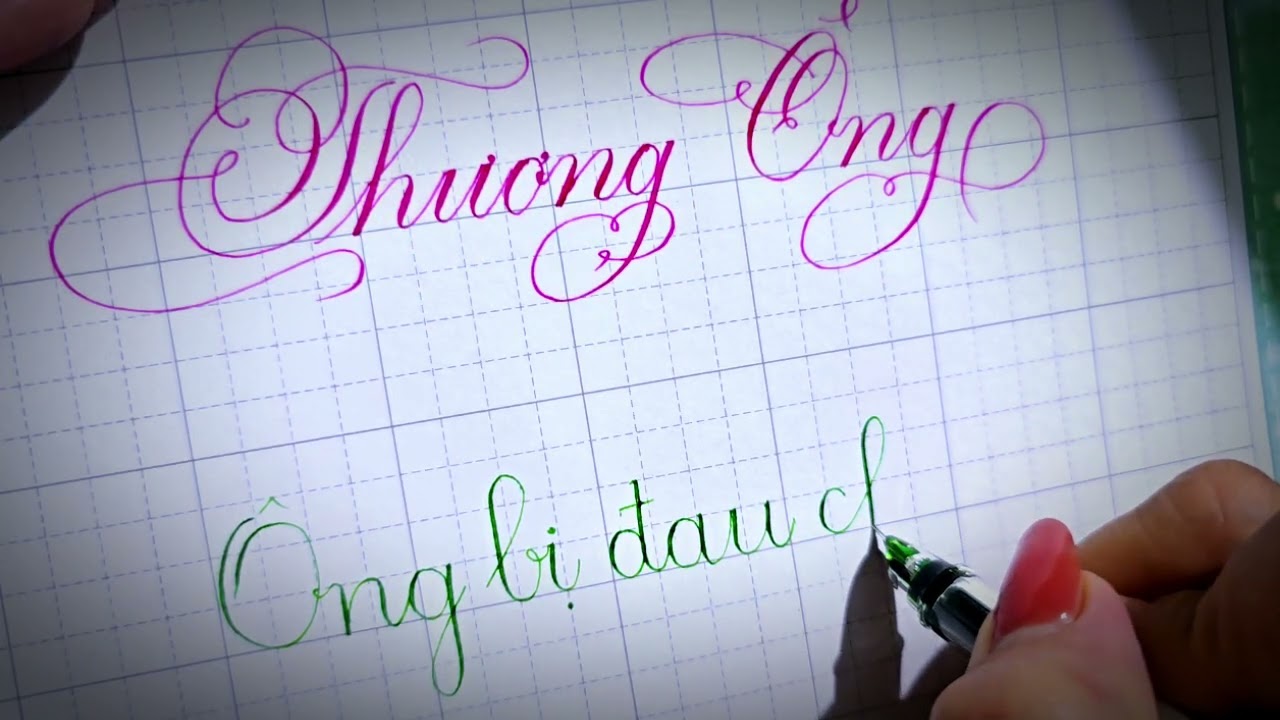 Thương Ông
Ông bị đau